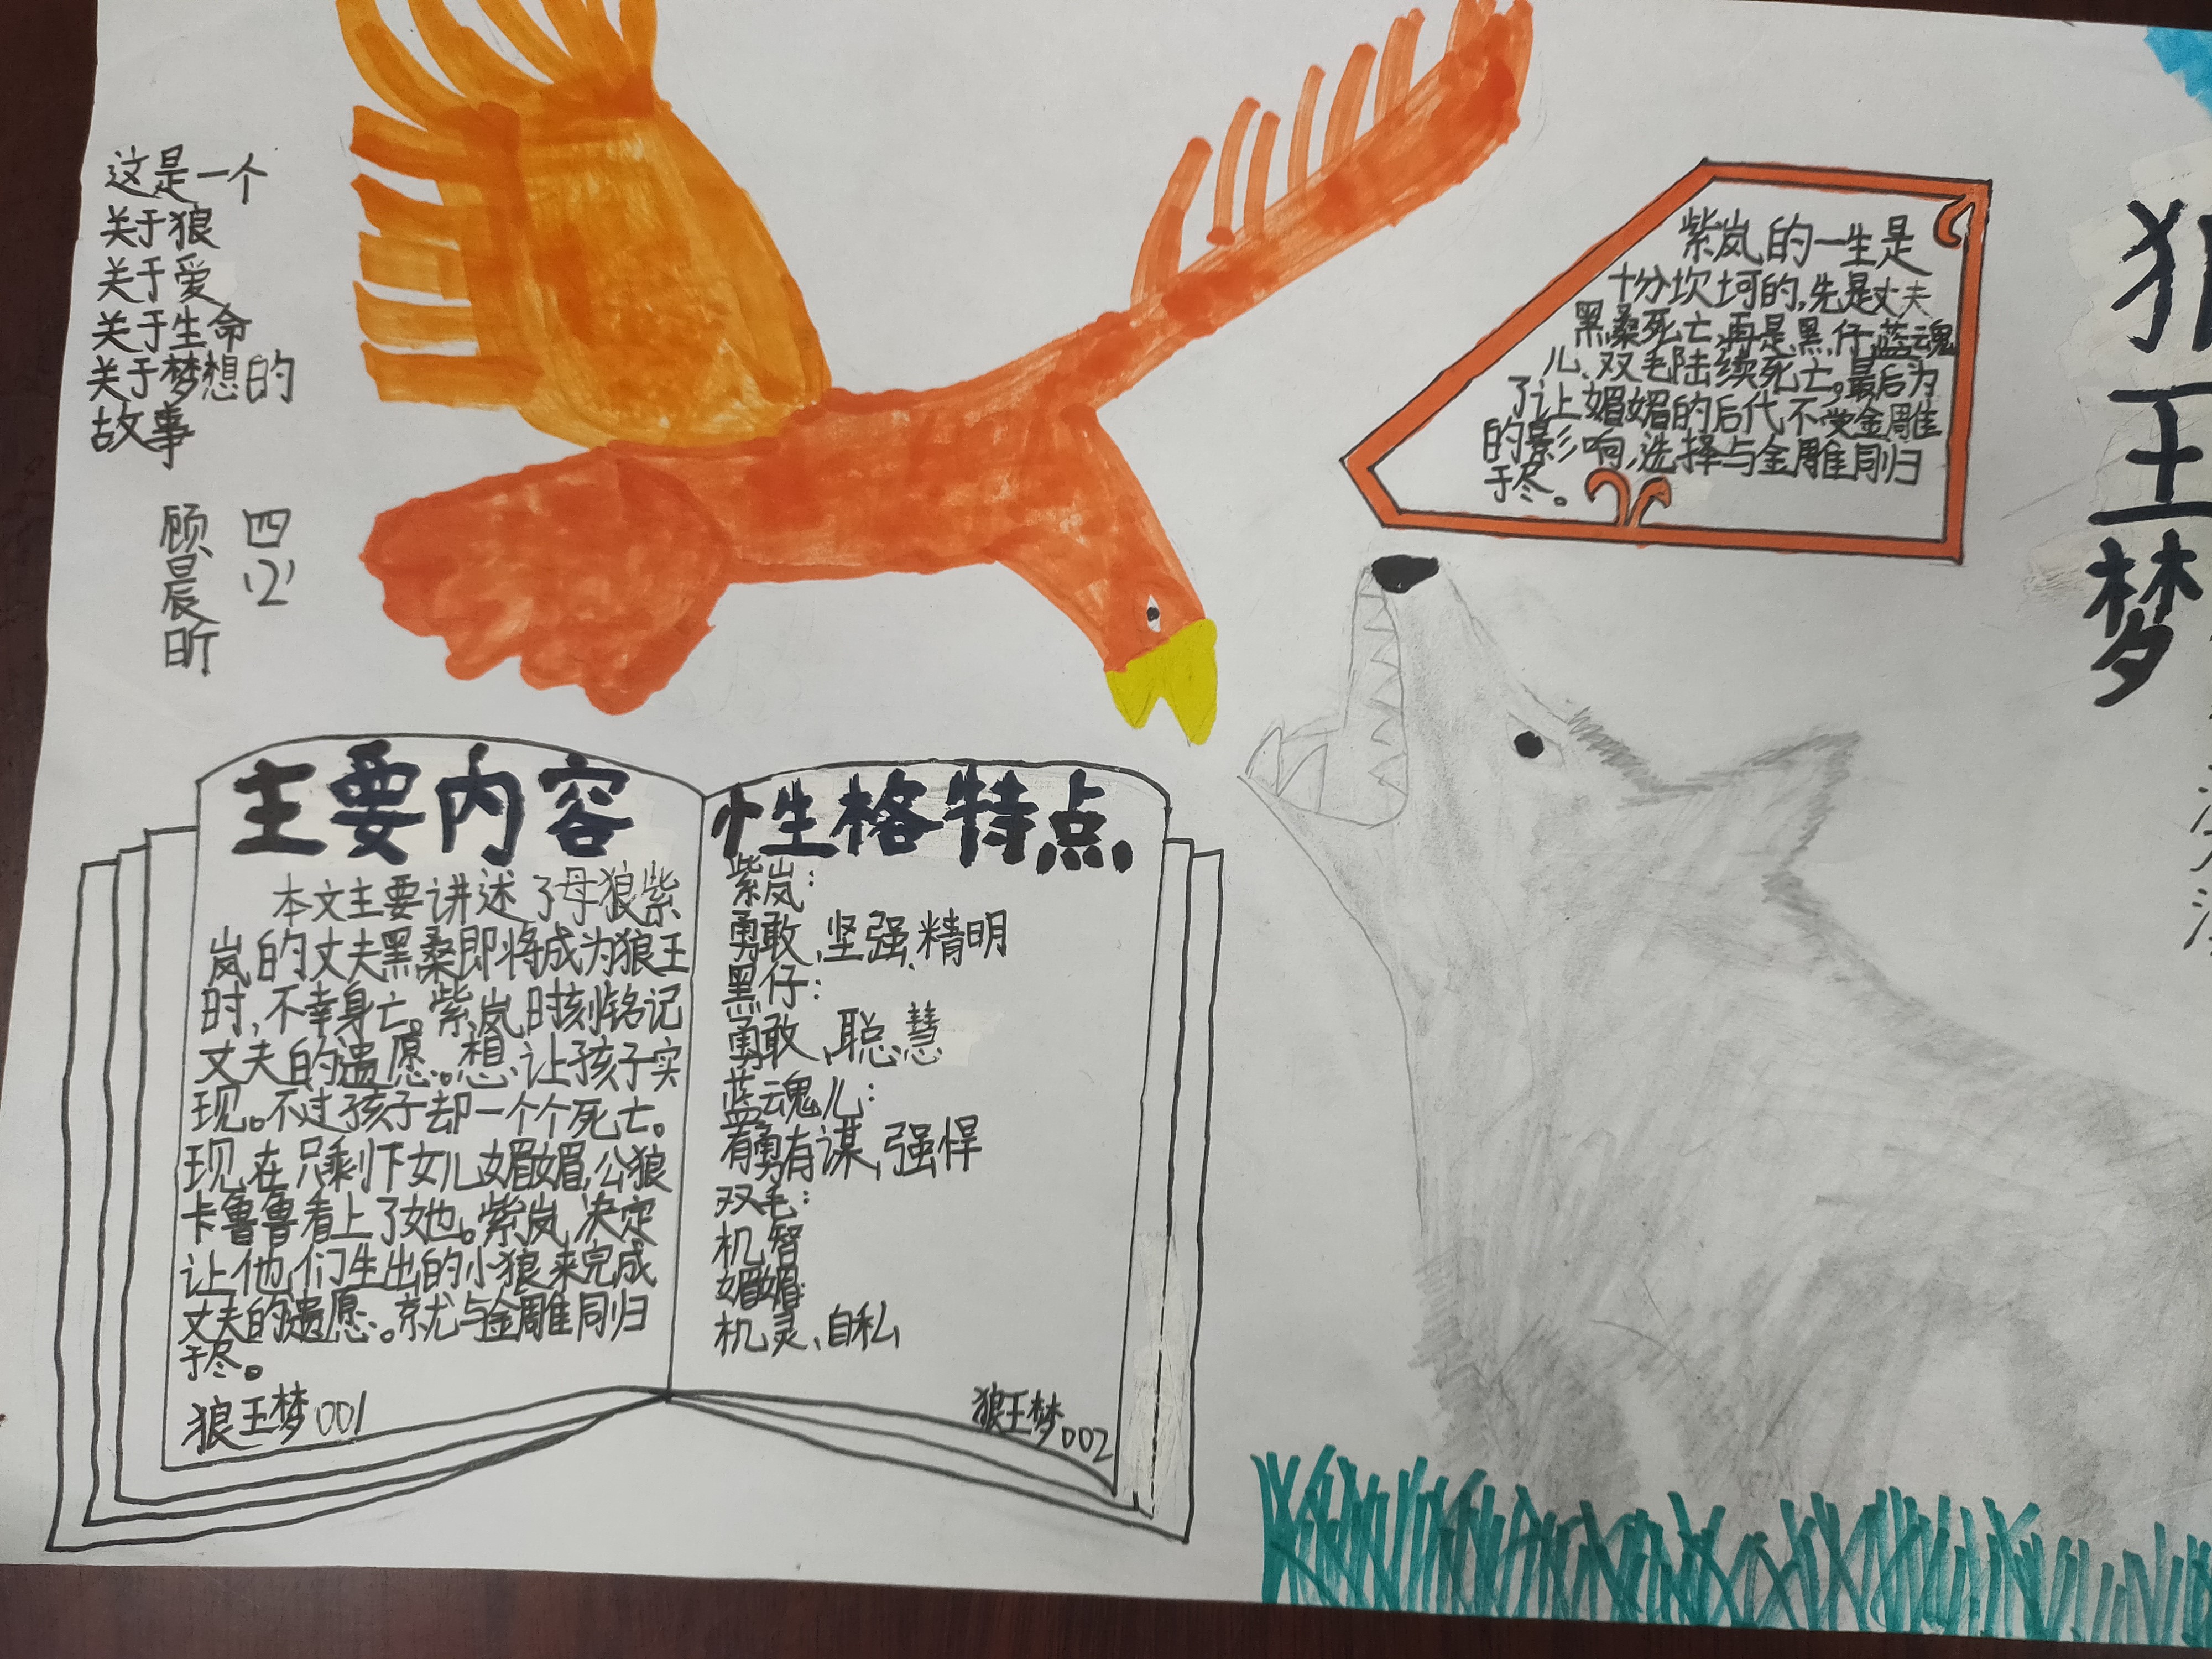 这是一个
关于狼
关于爱
关于生命
关于梦想的
故事
四(2)
顾晨昕
紫岚的一生是
十分坎坷的,先是丈夫
黑桑死亡,再是黑仔、蓝魂
儿、双毛陆续死亡。最后为
了让媚媚的后代不受金雕
的影响,选择与金雕同归
于尽。
狼王梦
主要内容
本文主要讲述了母狼紫
岚的丈夫黑桑即将成为狼王
时,不幸身亡。紫岚时刻铭记
丈夫的遗愿。想让孩子实
现。不过孩子却一个个死亡。
现在只剩下女儿媚媚,公狼
卡鲁鲁看上了她。紫岚决定
让他们生出的小狼来完成
丈夫的遗愿。就与金雕同归
于尽。
狼王梦001
性格特点
紫岚:
勇敢、坚强、精明
黑仔:
勇敢、聪慧
蓝魂儿:
有勇有谋、强悍
双毛:
机智
媚媚:
机灵、自私
狼王梦002